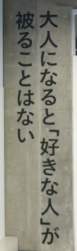 大人になると「好きな人」が
被ることはない